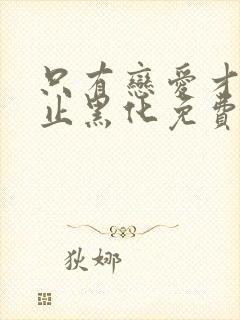 只有戀愛才
止黑化免費
狄娜